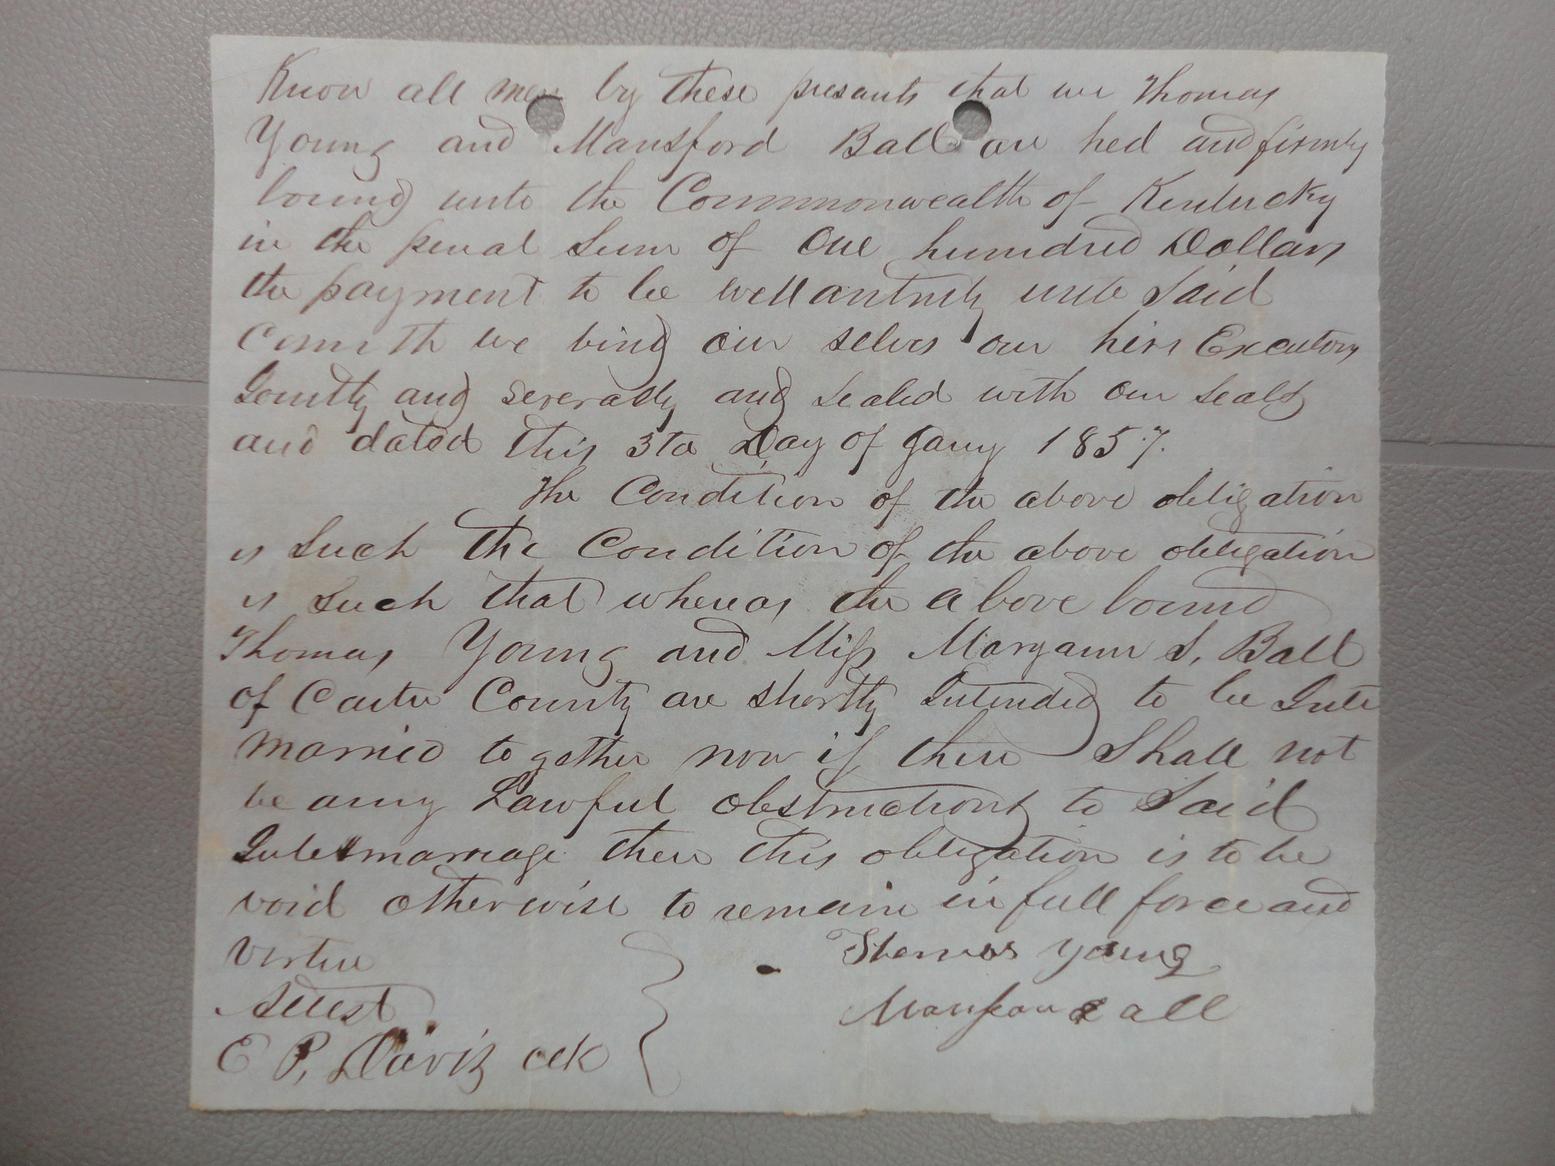 Know all men by these presants that we Thomas
Young and Mansford Ball are hed and firmly
bound unto the Commmonwealth of Kentucky
in the penal Sum of One hundred Dollars
the payment to be well antruly unto Said
Comith we bind our selves our hirs Executors
Jointly and severally and Sealed with our Seals
and dated this 3ta Day of Jany 1857.
The Condition of the above obligation
is Such the Condition of the above obligation
is Such that whereas the above bound
Thomas Young and Miss Maryann S. Ball
of Carter County are shortly Intended to be Inte
married together now if there Shall not
be any Lawful obstructions to Said
Intermarriage then this obligation is to be
void otherwise to remain in full force and
Virtue
Thomas Young
Attest
Mansfond Ball
E P. Davis clk